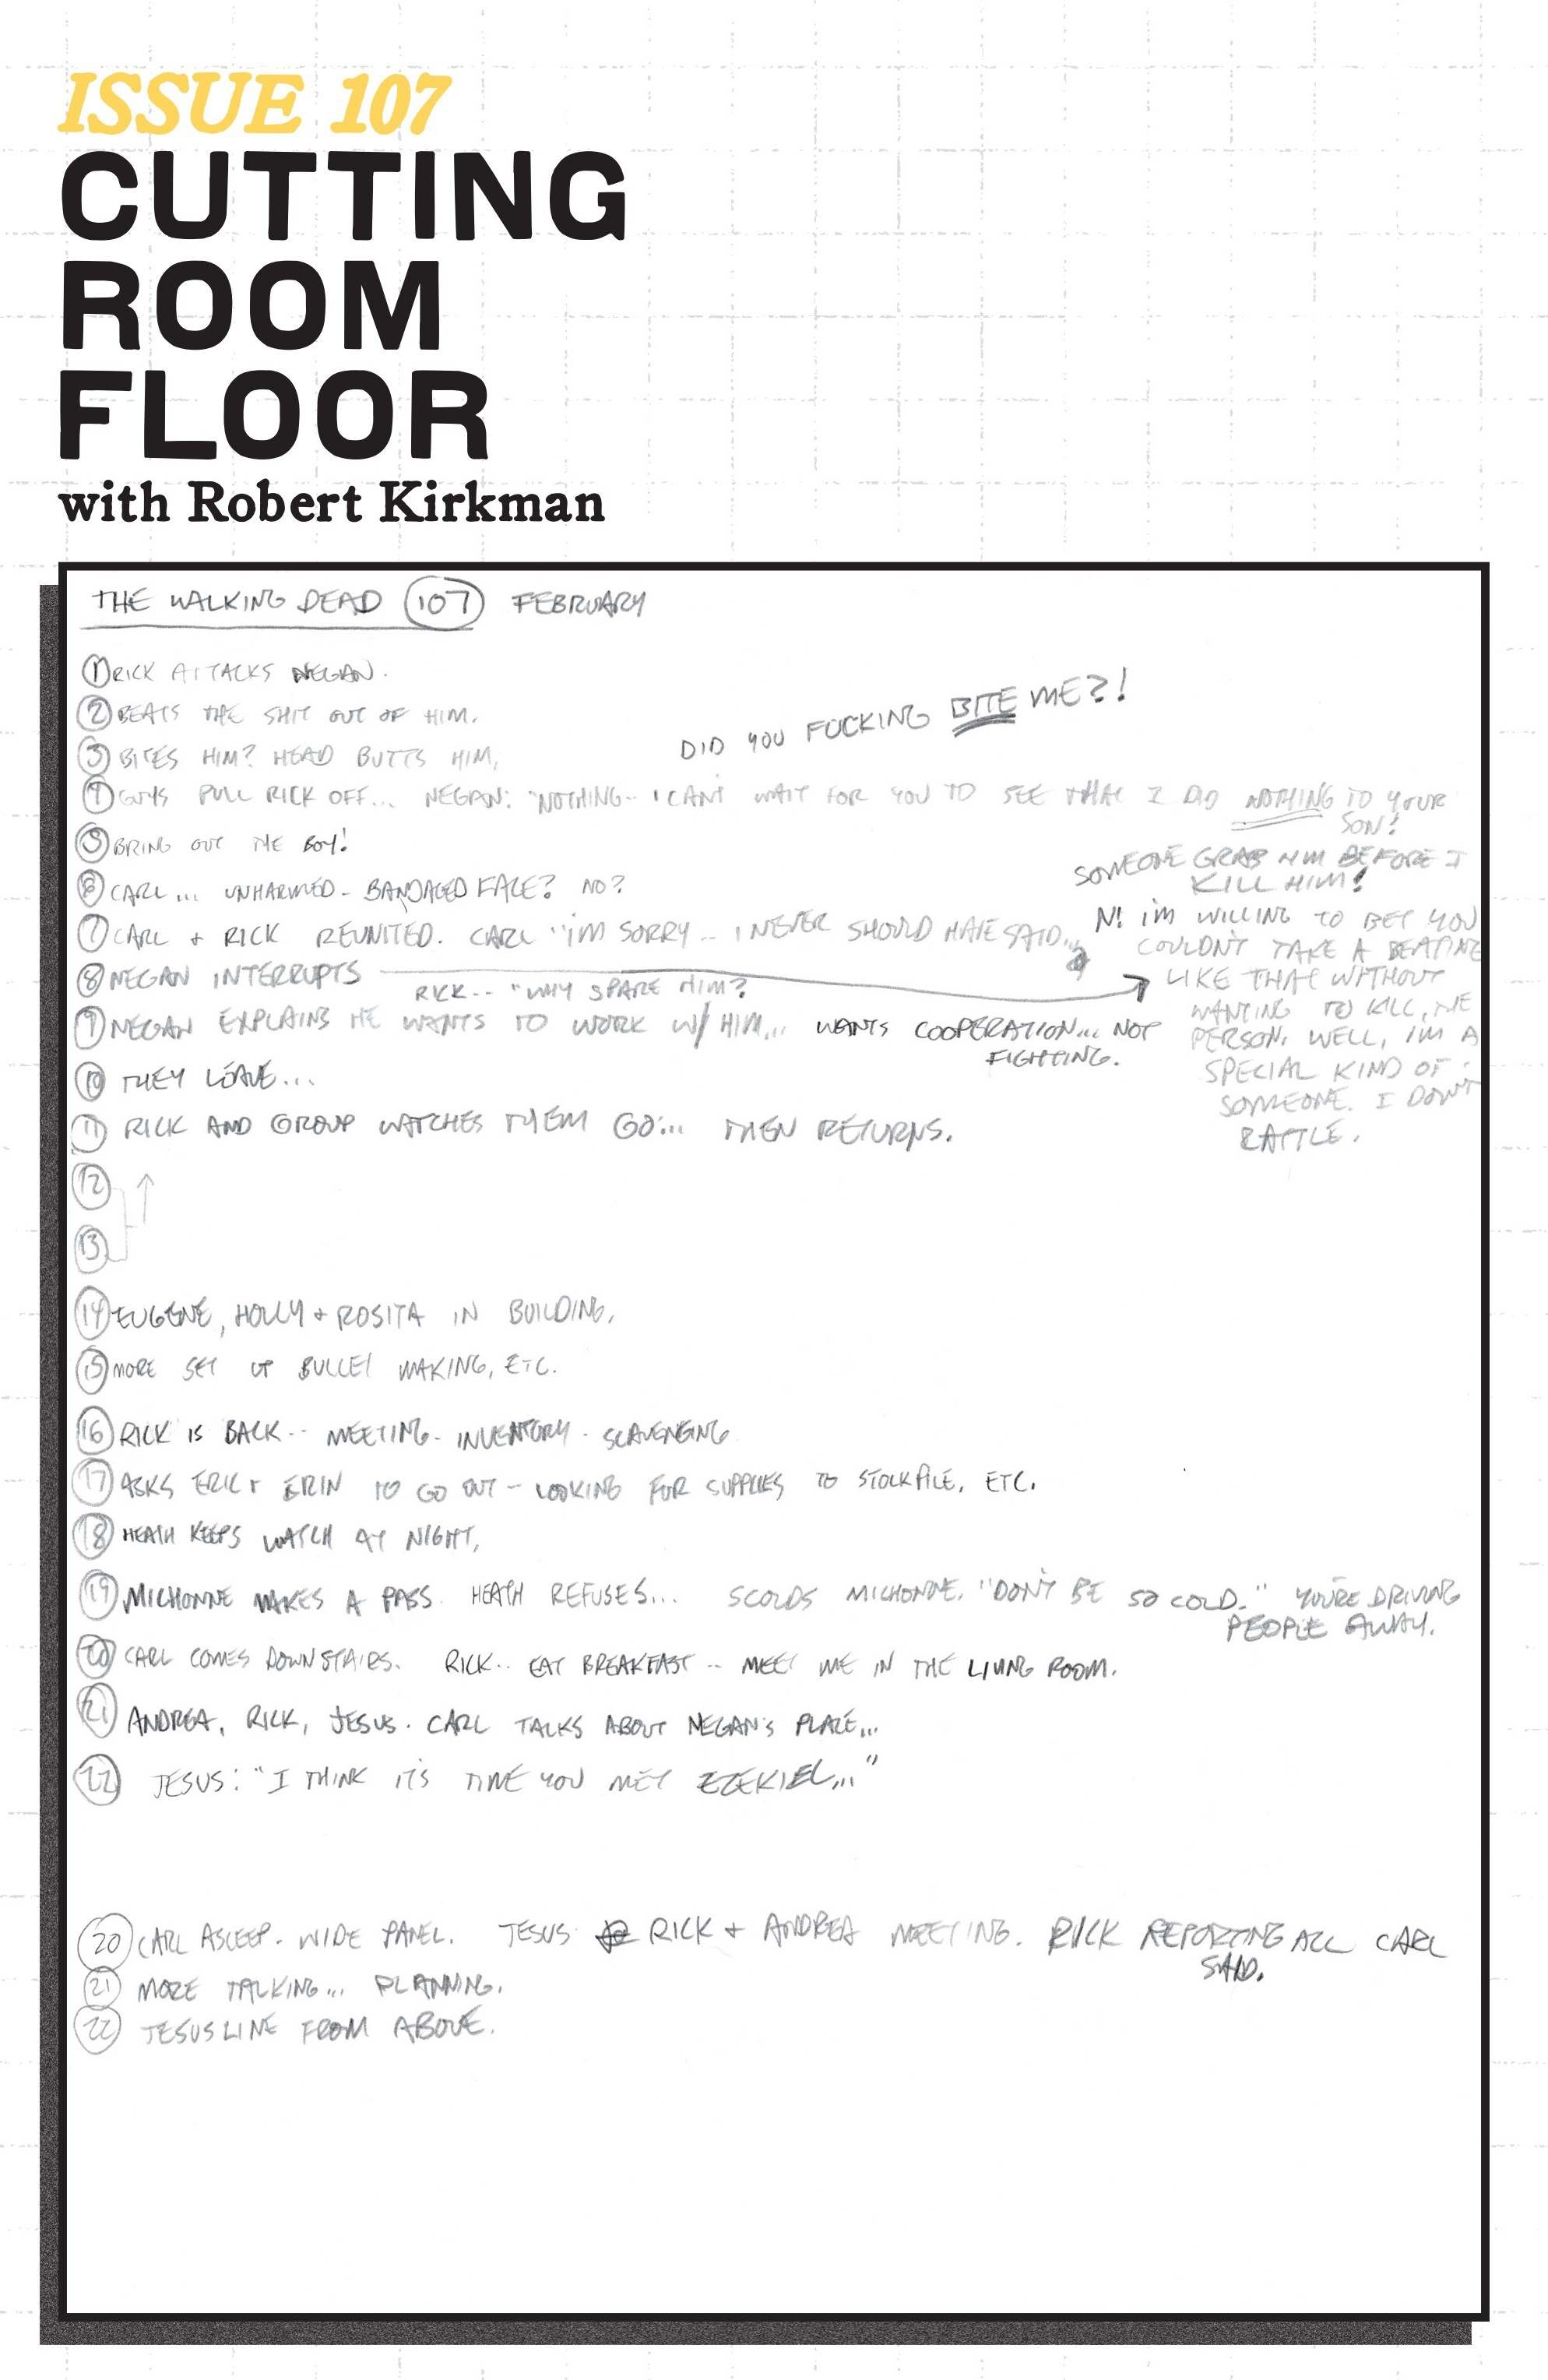 ISSUE 107
CUTTING
ROOM
FLOOR
with Robert Kirkman
THE WALKING DEAD 107 FEBRUARY
1 RICK ATTACKS NEGAN.
2 BEATS THE SHIT OUT OF HIM.
DID YOU FUCKING BITE ME?!
3 BITES HIM? HEAD BUTTS HIM,
4 GUYS PULL RICK OFF... NEGAN: "NOTHING-- I CAN'T WAIT FOR YOU TO SEE THAT I DID NOTHING TO YOUR
SON!
5 BRING OUT THE BOY!
SOMEONE GRAB HIM BEFORE I
KILL HIM!
6 CARL... UNHARMED - BANDAGED FACE? NO?
7 CARL + RICK REUNITED. CARL "I'M SORRY -- I NEVER SHOULD HAVE SAID...
8 NEGAN INTERRUPTS
RICK-- "WHY SPARE HIM?
N! I'M WILLING TO BET YOU
COULDN'T TAKE A BEATING
LIKE THAT WITHOUT
WANTING TO KILL THE
PERSON. WELL, I'M A
SPECIAL KIND OF
SOMEONE. I DON'T
RATTLE.
9 NEGAN EXPLAINS HE WANTS TO WORK W/ HIM... WANTS COOPERATION... NOT
FIGHTING.
10 THEY LEAVE...
11 RICK AND GROUP WATCHES THEM GO... THEN RETURNS.
12
13
14 EUGENE, HOLLY + ROSITA IN BUILDING.
15 MORE SET UP BULLET MAKING, ETC.
16 RICK IS BACK-- MEETING- INVENTORY - SCAVENGING
17 ASKS ERIC + ERIN TO GO OUT - LOOKING FOR SUPPLIES TO STOCKPILE, ETC.
18 HEATH KEEPS WATCH AT NIGHT.
19 MICHONNE MAKES A PASS. HEATH REFUSES... SCOLDS MICHONNE. "DON'T BE SO COLD." YOU'RE DRIVING
PEOPLE AWAY.
20 CARL COMES DOWNSTAIRS. RICK-- EAT BREAKFAST -- MEET ME IN THE LIVING ROOM.
21 ANDREA, RICK, JESUS. CARL TALKS ABOUT NEGAN'S PLACE...
22 JESUS: "I THINK IT'S TIME YOU MET EZEKIEL..."
20 CARL ASLEEP - WIDE PANEL. JESUS RICK + ANDREA MEETING. RICK REPORTING ALL CARL
SAID.
21 MORE TALKING... PLANNING.
22 JESUS LINE FROM ABOVE.